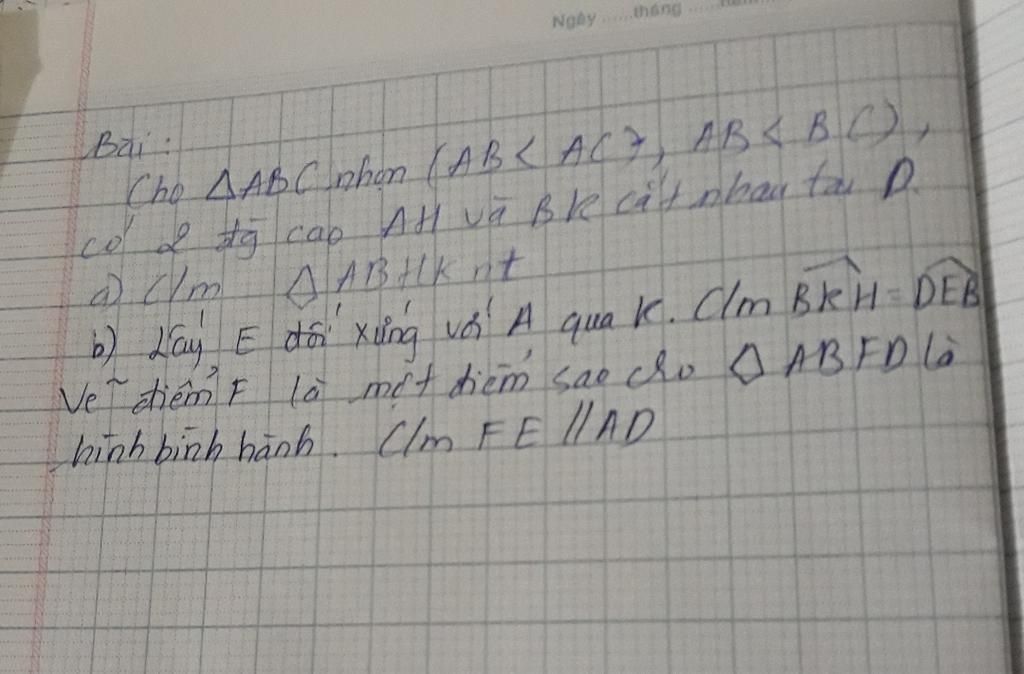 Ngày ......tháng ......
Bài:
Cho △ABC nhọn (AB < AC), AB < BC),
có 2 đg cao AH và BK cắt nhau tại D.
a) C/m △ ABHK nt
b) Lấy E đối xứng với A qua K. C/m BKH = DEB
Vẽ điểm F là một điểm sao cho ◇ ABFD là
hình bình hành. C/m FE // AD